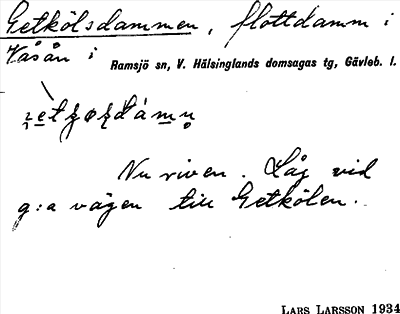 Getkölsdammen, flottdamm i
Kåsån i
Ramsjö sn, V. Hälsinglands domsagas tg, Gävleb. l.
Nu riven. Låg vid
g:a vägen till Getkölen.
LARS LARSSON 1934